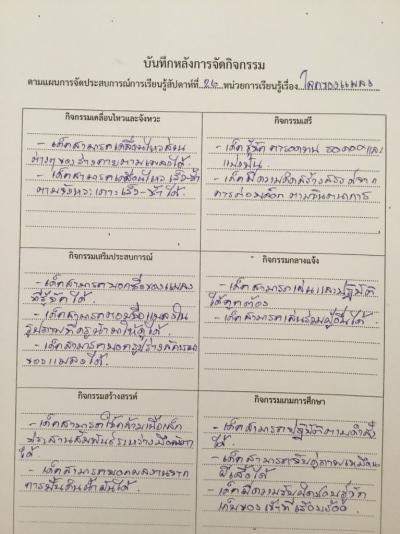 บันทึกหลังการจัดกิจกรรม
ตามแผนการจัดประสบการณ์การเรียนรู้สัปดาห์ที่ 26 หน่วยการเรียนรู้เรื่อง โลกของแมลง
กิจกรรมเคลื่อนไหวและจังหวะ
- เด็กสามารถเคลื่อนไหวส่วน
ต่างๆของร่างกายตามเพลงได้.
- เด็กสามารถเคลื่อนไหวเร็ว-ช้า
ตามจังหวะเคาะเร็ว-ช้าได้.
กิจกรรมเสรี
- เด็กรู้จัก การอดทน รอคอยและ
แบ่งปัน.
- เด็กมีความคิดสร้างสรรค์จาก
การต่อบล็อกตามจินตนาการ
กิจกรรมเสริมประสบการณ์
- เด็กสามารถบอกชื่อของแมลง
ที่รู้จักได้.
- เด็กสามารถตอบชื่อแมลงใน
รูปภาพที่ครูนำมาให้ดูได้.
- เด็กสามารถบอกรูปร่างลักษณะ
ของแมลงได้.
กิจกรรมกลางแจ้ง
- เด็กสามารถเล่นและปฏิบัติ
ได้ถูกต้อง
- เด็กสามารถเล่นร่วมผู้อื่นได้.
กิจกรรมสร้างสรรค์
- เด็กสามารถใช้กล้ามเนื้อเล็ก
ประสานสัมพันธ์ระหว่างมือกับตา
ได้
- เด็กสามารถบอกผลงานจาก
การปั้นดินน้ำมันได้.
กิจกรรมเกมการศึกษา
- เด็กสามารถปฏิบัติตามคำสั่ง
ได้.
- เด็กสามารถจับคู่ภาพเหมือน
ผีเสื้อได้
- เด็กมีความรับผิดชอบรู้จัก
เก็บของเข้าที่เรียบร้อย.